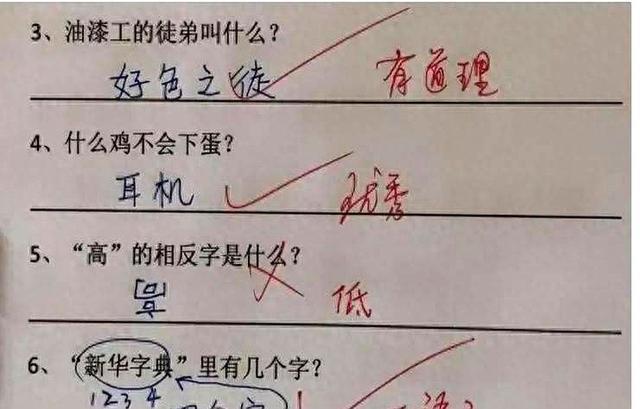 3、油漆工的徒弟叫什么？
好色之徒 有道理
4、什么鸡不会下蛋？
耳机 优秀
5、“高”的相反字是什么？
低
6、“新华字典”里有几个字？
1 2 3 4